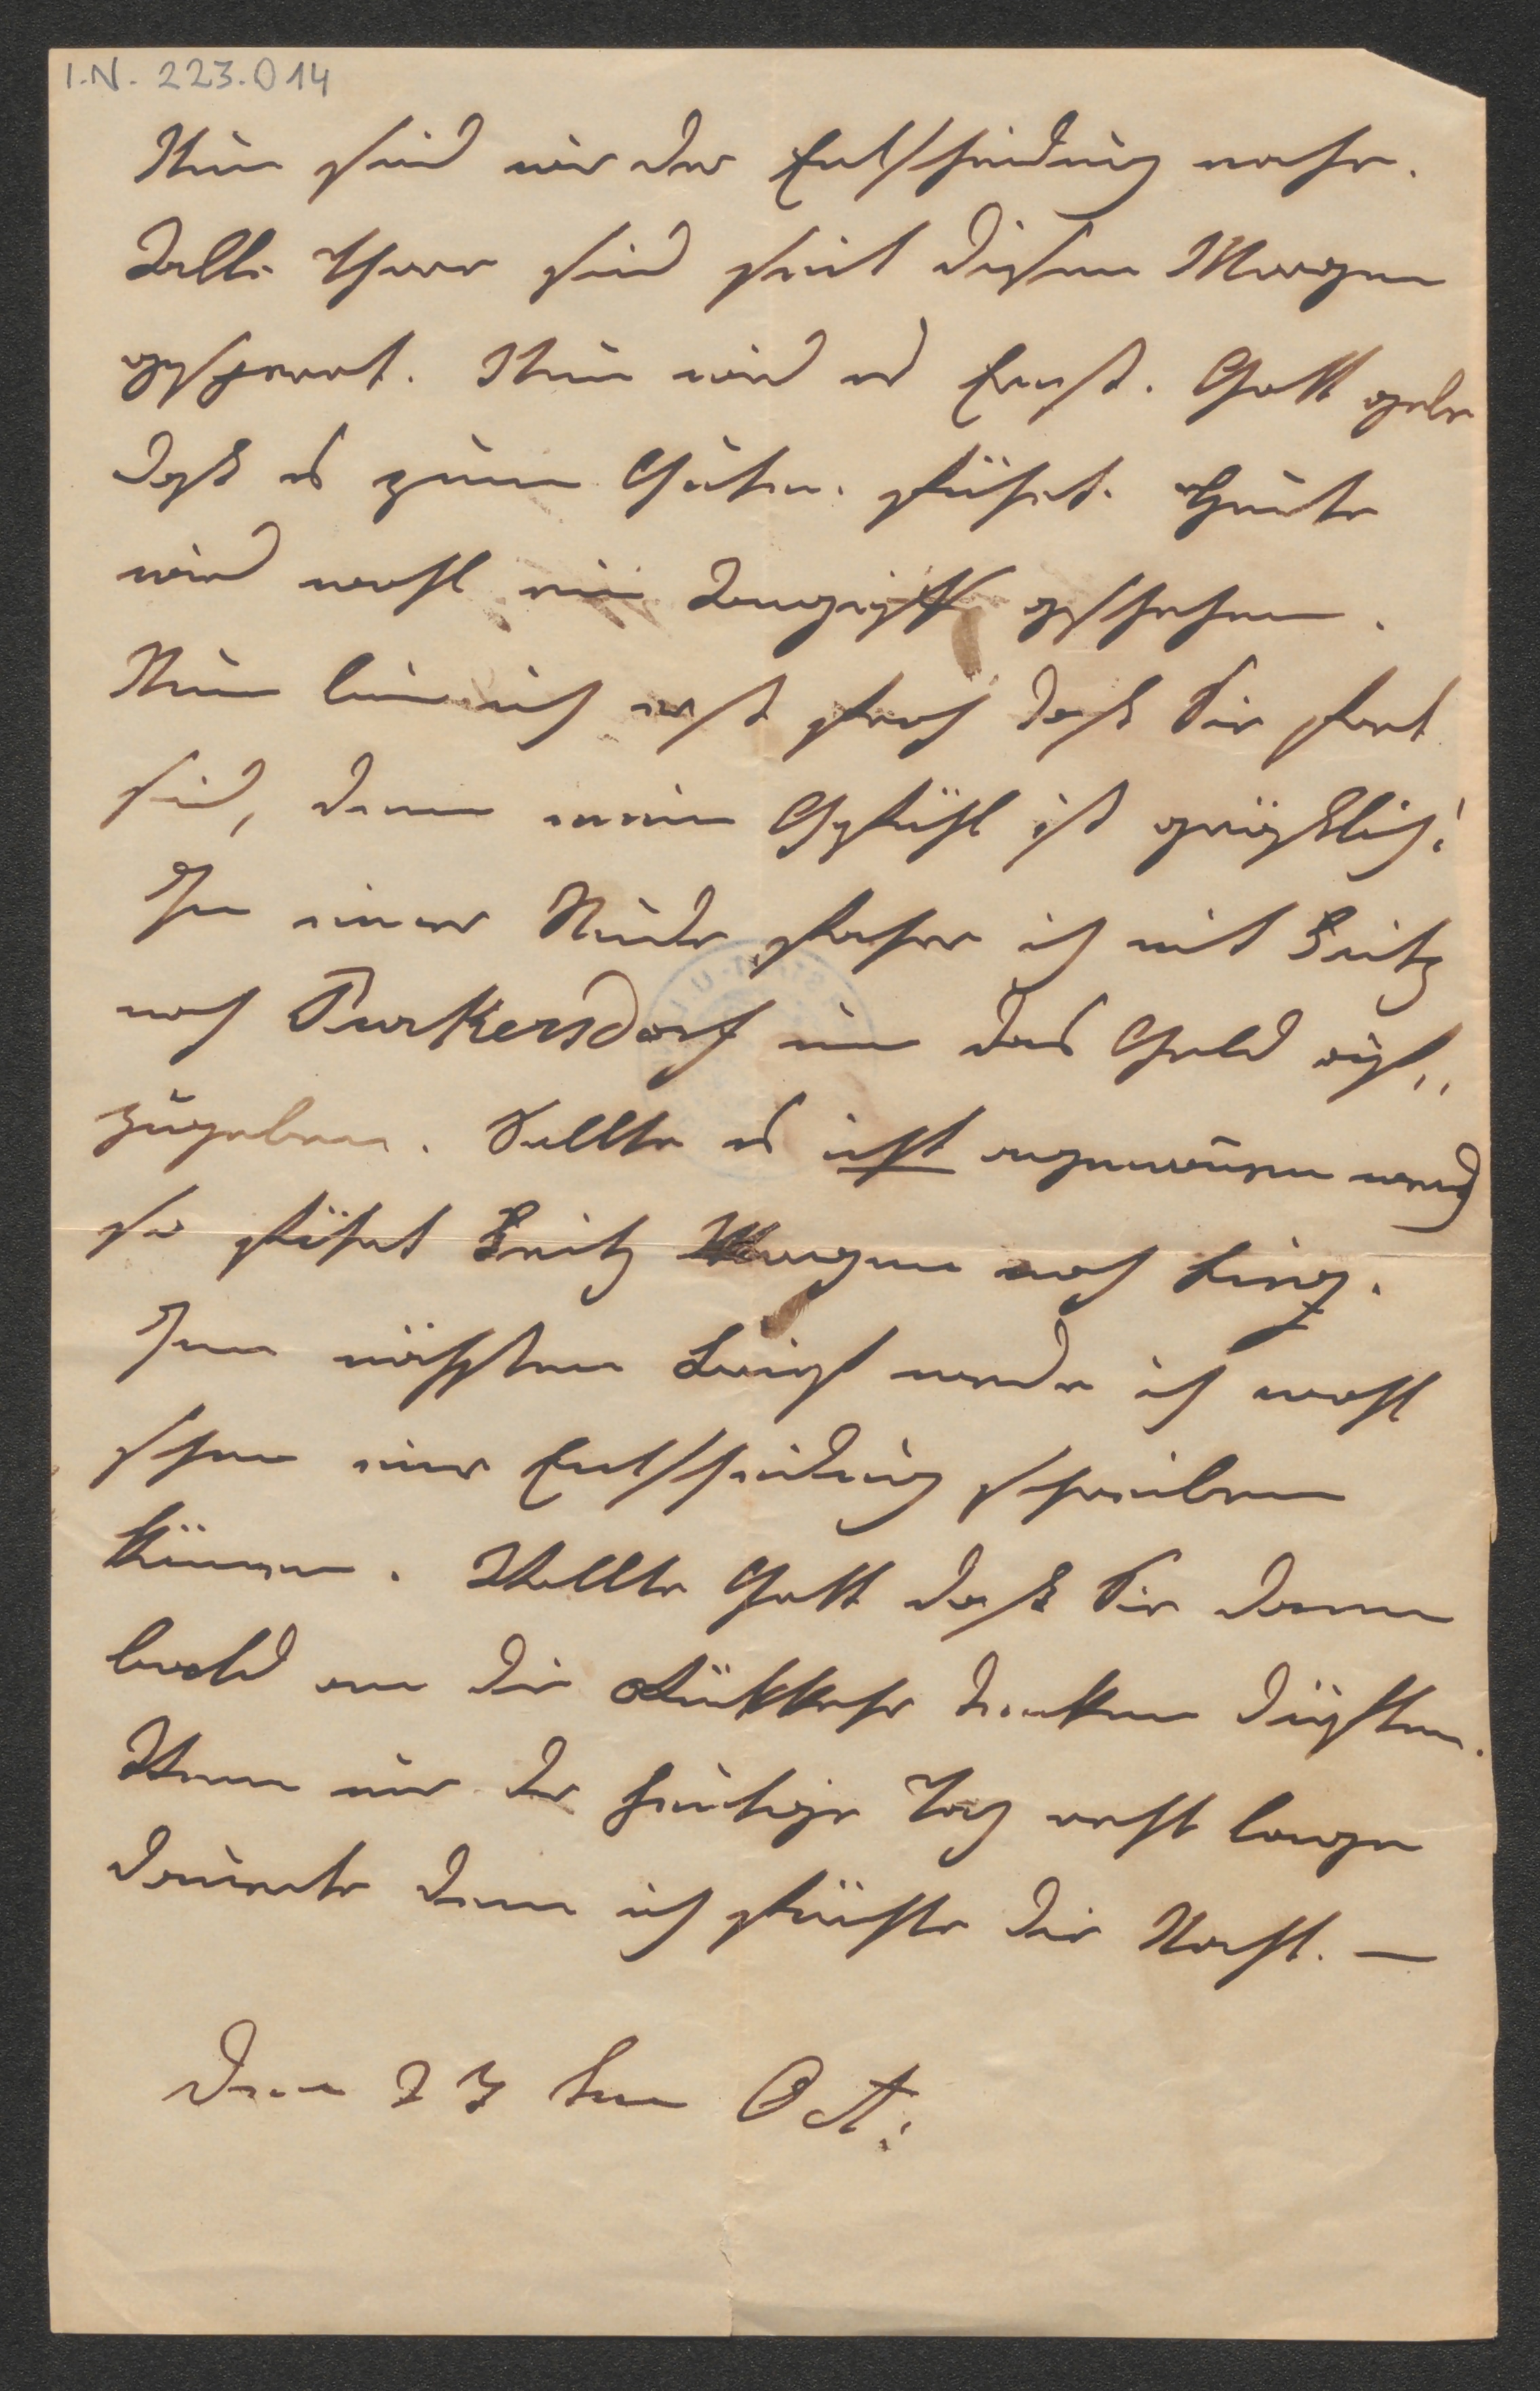 I.N. 223.014
Nun sind wir der Entscheidung nahe.
Alle Thore sind seit diesem Morgen
gesperrt. Nun wird es Ernst. Gott gebe
daß es zum Guten führt. Heute
wird wohl ein Angriff geschehen.
Nun bin ich erst froh daß Sie fort
sind, denn mein Gefühl ist gräßlich!
In einer Stunde fahre ich mit Fritz
nach Purkersdorf um das Geld auf„
zugeben. Sollte es nicht angenommen werd
so führt Fritz Morgen nach Linz.
Im nächsten Brief werde ich wohl
schon eine Entscheidung schreiben
können. Wollte Gott daß Sie dann
bald an die Rückkehr denken dürften.
Wenn nur der heutige Tag recht lange
dauerte denn ich fürchte die Nacht. —
Den 23ten Oct: